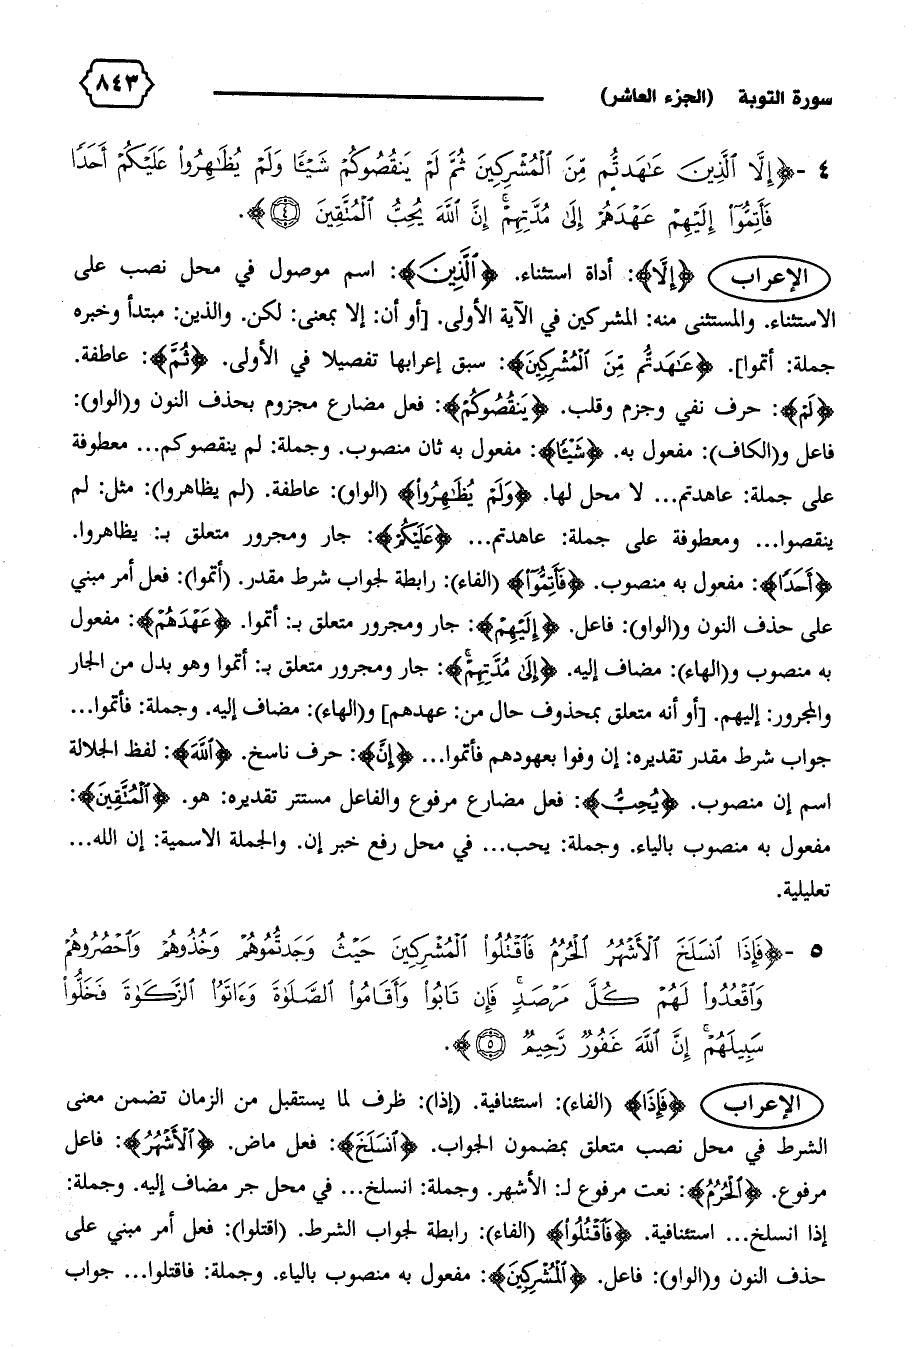 سورة التوبة (الجزء العاشر) ٨٤٣
٤ - ﴿إِلَّا ٱلَّذِينَ عَٰهَدتُّم مِّنَ ٱلْمُشْرِكِينَ ثُمَّ لَمْ يَنقُصُوكُمْ شَيْـًٔا وَلَمْ يُظَٰهِرُوا۟ عَلَيْكُمْ أَحَدًا
فَأَتِمُّوٓا۟ إِلَيْهِمْ عَهْدَهُمْ إِلَىٰ مُدَّتِهِمْ ۚ إِنَّ ٱللَّهَ يُحِبُّ ٱلْمُتَّقِينَ ٤﴾.
الإعراب ﴿إِلَّا﴾: أداة استثناء. ﴿ٱلَّذِينَ﴾: اسم موصول في محل نصب على
الاستثناء. والمستثنى منه: المشركين في الآية الأولى. [أو أن: إلا بمعنى: لكن. والذين: مبتدأ وخبره
جملة: أتموا]. ﴿عَٰهَدتُّم مِّنَ ٱلْمُشْرِكِينَ﴾: سبق إعرابها تفصيلا في الأولى. ﴿ثُمَّ﴾: عاطفة.
﴿لَمْ﴾: حرف نفي وجزم وقلب. ﴿يَنقُصُوكُمْ﴾: فعل مضارع مجزوم بحذف النون و(الواو):
فاعل و(الكاف): مفعول به. ﴿شَيْـًٔا﴾: مفعول به ثان منصوب. وجملة: لم ينقصوكم... معطوفة
على جملة: عاهدتم... لا محل لها. ﴿وَلَمْ يُظَٰهِرُوا۟﴾ (الواو): عاطفة. (لم يظاهروا): مثل: لم
ينقصوا... ومعطوفة على جملة: عاهدتم... ﴿عَلَيْكُمْ﴾: جار ومجرور متعلق بـ: يظاهروا.
﴿أَحَدًا﴾: مفعول به منصوب. ﴿فَأَتِمُّوٓا۟﴾ (الفاء): رابطة لجواب شرط مقدر. (أتموا): فعل أمر مبني
على حذف النون و(الواو): فاعل. ﴿إِلَيْهِمْ﴾: جار ومجرور متعلق بـ: أتموا. ﴿عَهْدَهُمْ﴾: مفعول
به منصوب و(الهاء): مضاف إليه. ﴿إِلَىٰ مُدَّتِهِمْ ۚ﴾: جار ومجرور متعلق بـ: أتموا وهو بدل من الجار
والمجرور: إليهم. [أو أنه متعلق بمحذوف حال من: عهدهم] و(الهاء): مضاف إليه. وجملة: فأتموا...
جواب شرط مقدر تقديره: إن وفوا بعهودهم فأتموا... ﴿إِنَّ﴾: حرف ناسخ. ﴿ٱللَّهَ﴾: لفظ الجلالة
اسم إن منصوب. ﴿يُحِبُّ﴾: فعل مضارع مرفوع والفاعل مستتر تقديره: هو. ﴿ٱلْمُتَّقِينَ﴾:
مفعول به منصوب بالياء. وجملة: يحب... في محل رفع خبر إن. والجملة الاسمية: إن الله...
تعليلية.
٥ - ﴿فَإِذَا ٱنسَلَخَ ٱلْأَشْهُرُ ٱلْحُرُمُ فَٱقْتُلُوا۟ ٱلْمُشْرِكِينَ حَيْثُ وَجَدتُّمُوهُمْ وَخُذُوهُمْ وَٱحْصُرُوهُمْ
وَٱقْعُدُوا۟ لَهُمْ كُلَّ مَرْصَدٍ ۚ فَإِن تَابُوا۟ وَأَقَامُوا۟ ٱلصَّلَوٰةَ وَءَاتَوُا۟ ٱلزَّكَوٰةَ فَخَلُّوا۟
سَبِيلَهُمْ ۚ إِنَّ ٱللَّهَ غَفُورٌ رَّحِيمٌ ٥﴾.
الإعراب ﴿فَإِذَا﴾ (الفاء): استئنافية. (إذا): ظرف لما يستقبل من الزمان تضمن معنى
الشرط في محل نصب متعلق بمضمون الجواب. ﴿ٱنسَلَخَ﴾: فعل ماض. ﴿ٱلْأَشْهُرُ﴾: فاعل
مرفوع. ﴿ٱلْحُرُمُ﴾: نعت مرفوع لـ: الأشهر. وجملة: انسلخ... في محل جر مضاف إليه. وجملة:
إذا انسلخ... استئنافية. ﴿فَٱقْتُلُوا۟﴾ (الفاء): رابطة لجواب الشرط. (اقتلوا): فعل أمر مبني على
حذف النون و(الواو): فاعل. ﴿ٱلْمُشْرِكِينَ﴾: مفعول به منصوب بالياء. وجملة: فاقتلوا... جواب